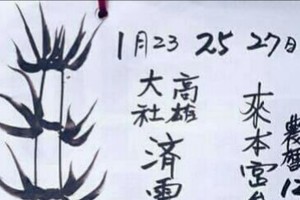 1月23 25 27日
高雄
大社
濟
來本宮
農曆12